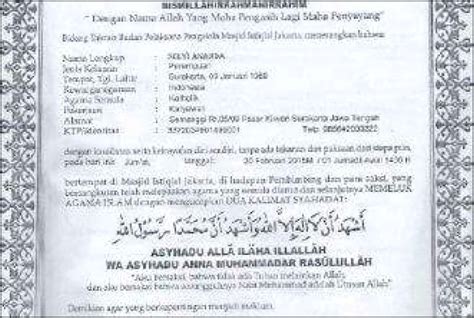 BISMILLAHIRRAHMANIRRAHIM
"Dengan Nama Allah Yang Maha Pengasih Lagi Maha Penyayang"
Bidang Urusan Badan Pelaksana Pengelola Masjid Istiqlal Jakarta, menerangkan bahwa:
Nama Lengkap :
Jenis Kelamin : Perempuan
Tempat, Tgl. Lahir : Surakarta, 09 Januari
Kewarganegaraan : Indonesia
Agama Semula : Katholik
Pekerjaan : Karyawan
Alamat : Semanggi Rt.05/09 Pasar Kliwon Surakarta Jawa Tengah
KTP/Identitas :
dengan kesadaran serta keinsyafan diri sendiri, tanpa ada tekanan dan paksaan dari siapa pun,
pada hari ini Jum'at, tanggal: 20 Februari 2015M /
bertempat di Masjid Istiqlal Jakarta, di hadapan Pembimbing dan para saksi, yang
bersangkutan telah melepaskan agama yang semula dianut dan selanjutnya MEMELUK
AGAMA ISLAM dengan mengucapkan DUA KALIMAT SYAHADAT:
أشهد أن لا إله إلا الله وأشهد أن محمدا رسول الله
ASYHADU ALLÂ ILÂHA ILLALLÂH
WA ASYHADU ANNA MUHAMMADAR RASÛLULLÂH
"Aku bersaksi, bahwa tidak ada Tuhan melainkan Allah,
dan aku bersaksi bahwa sesungguhnya Nabi Muhammad adalah Utusan Allah"
Demikian agar yang berkepentingan menjadi maklum.